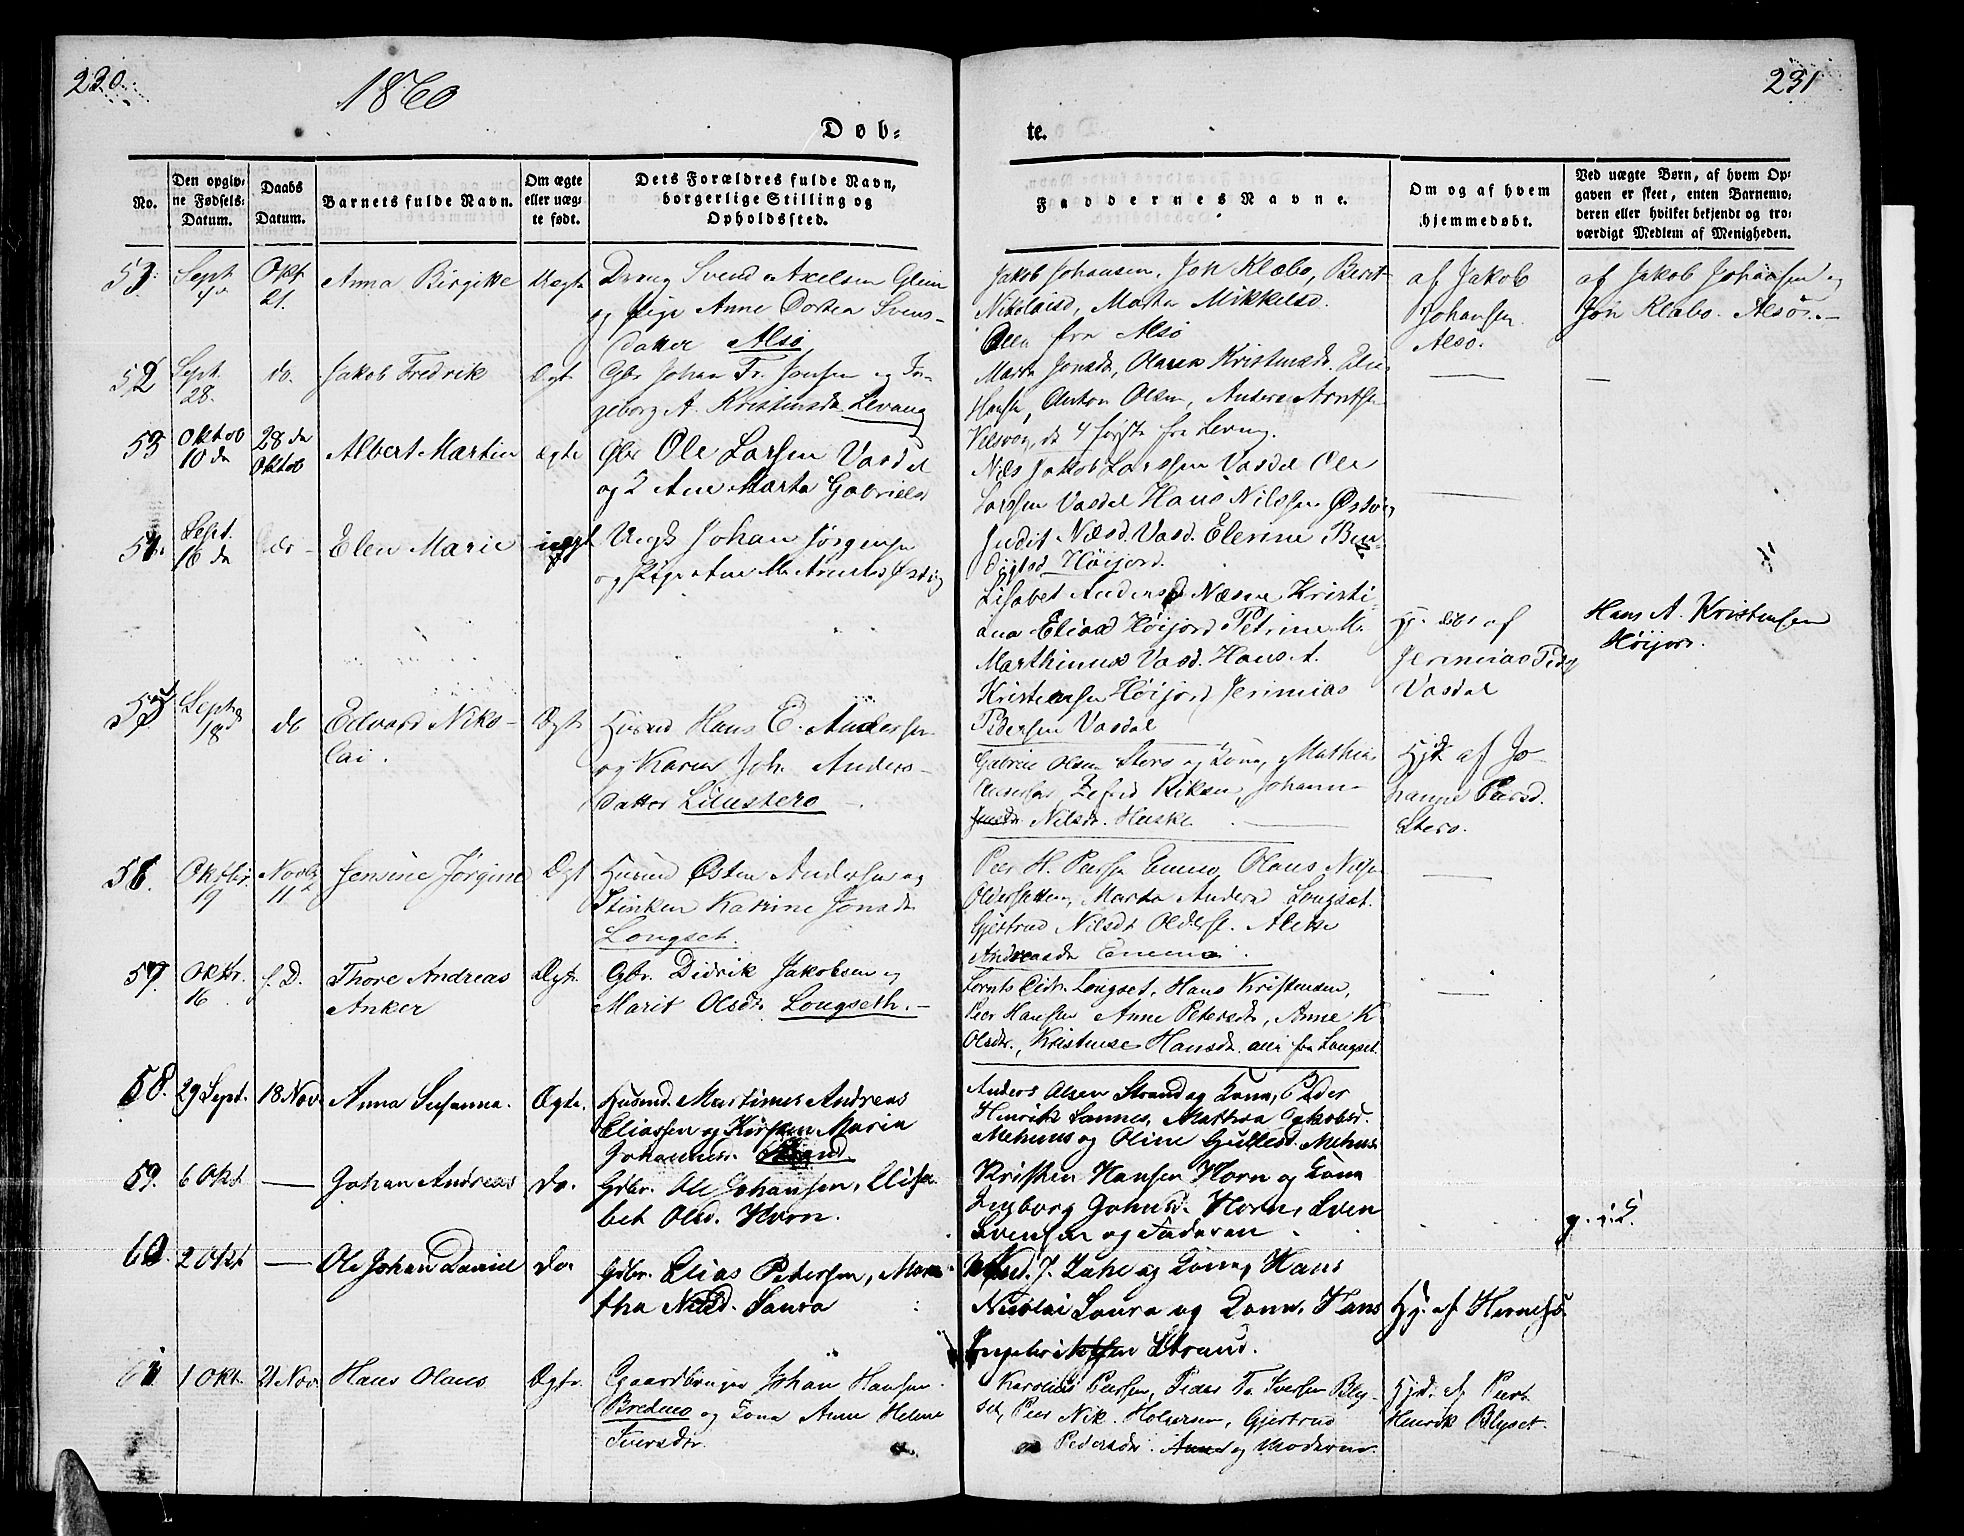 230.
1860
231
Døb-
te.
No.
Den opgiv-
ne Fødsels-
Datum.
Daabs
Datum.
Barnets fulde Navn.
Om ægte
eller uæg-
te født.
Dets Forældres fulde Navn,
borgerlige Stilling og
Opholdssted.
Faddernes Navne.
Om og af hvem
hjemmedøbt.
Ved uægte Børn, af hvem Op-
gaven er skeet, enten Barnemo-
deren eller hvilket bekjendt og tro-
værdigt Medlem af Menigheden.
Sept
4
Okt
21.
Anna Birgitte
Uægte
Dreng Svend Axelsen Glein
og Pige Anne Dortea Svens-
datter Alsø
Jakob Johansen, Jon Klæbo, Berit
Nikolaisd, Marta Mikkelsd.
fra Alsø
af Jakob
Johansen
Alsø.
af Jakob Johansen og
Jon Klæbo. Alsø.
52
Sept.
28.
do.
Jakob Fredrik
Ægt.
Gbr Johan Fr. Jensen og In-
geborg A. Kristensdr Levang
Marta Jonsdr, Olava Kristensdr.
Hansen, Anton Olsen, Anders Arntsen
de 4 første fra Levang.
53
Oktob
10 de
28 de
Oktob
Albert Martin
ægte
Gbr Ole Larsen Vasdal
og 2 Ane Marta Gabrielsd
Nils Jakob Larssen Vasdal Ole
Larssen Vasdal Hans Nilssen Østvig
Judit Nilsd. Vasd. Elerine Ben-
digtsd Høijord.
54.
Sept.
16 de
Elen Marie
uægt
Ungk Johan Jørgensen
og Pige Ane M. Arntsd Østvig
Lisabet Andersd Næsne Kristi-
ana Eliasd Høijord Petrine M.
Marthinus Vasd. Hans A.
Kristensen Høijord Jerimias
Pedersen Vasdal
Hj. døbt af
Jerimias Peds
Vasdal
Hans A. Kristensen
Høijord.
55
Septb
18 d
do
Edvard Niko-
lai.
Ægte
Husmd Hans E. Andersen
og Karen Joh. Anders-
datter Lilustero
Gabriel Olsen Stero og Kona, Mathias
Johann-
Nilsdr. Huske
Hjd. af Jo-
hanne Persd.
Stero.
56.
Oktbr.
19
Novbr
11
Jensine Jørgine
Ægt
Husmd Østen Andersen og
Stinken Katrine Jonsdr
Longset.
Peer H. Persen Olaus Nilsen
Marta Andersd Longset.
Gjertrud Nilsdt
Andreasdr
57.
Oktbr.
16
s. D.
Thore Andreas
Anker
Ægt.
Gbr. Didrik Jakobsen og
Marit Olsdtr. Longseth.
Lornts Didr. Longset, Hans Kristensen,
Peer Hansen Anne Petersdr, Anne K
Olsdtr., Kristense Hansdr. alle fra Longset.
58.
29 Sept.
18 Nov.
Anna Susanna.
Ægte.
Husmd. Martinus Andreas
Eliassen og Kirsten Maria
Johannesdr. Strand.
Anders Olsen Strand og Kona, Peder
Henrik Sannes, Martha Jakobsd.
Mehuus og Oline Gullesd. Mehus
59.
6 Okt
Johan Andreas
do.
Gdbr. Ole Johansen, Elisa-
bet Olsd. Horn.
Kristen Hansen Horn og Kona
Ingborg Johnsd. Horn, Sven
Svensen og Faderen.
60
2 Okt
Ole Johan Daniel
do.
Gdbr. Elias Petersen, Mar-
tha Nilsd. Saura
og Kona, Hans
Nicolai Saura og Kona, Hans
Ingebriktsen Strand.
Hj. af Hernes
61
1 Okt.
21 Nov.
Hans Olaus
Ægte.
Gaardbruger Johan Hansen
Bredmo og Kona Anne Helene
Iversdtr.
Karolius Persen, Peder Fr. Iversen Bly-
set, Peer Nik. Holmsen, Gjertrud
Pedersdtr. og Moderen.
Hjd. af Peer
Henrik Blyset.